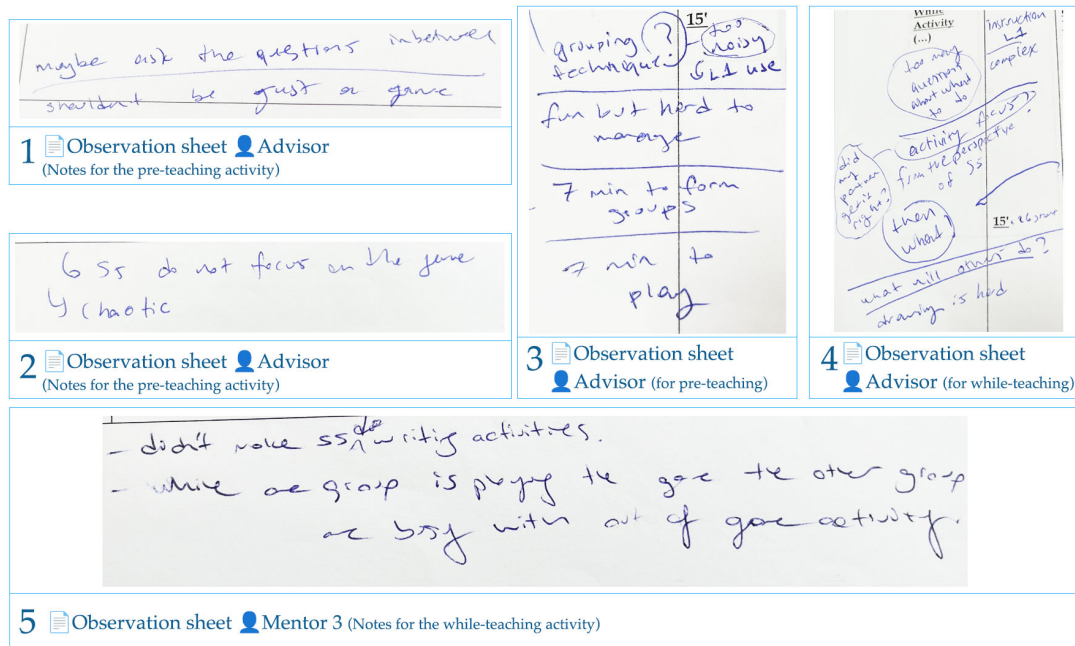 maybe ask the questions inbetween
shouldn't be just a game
1 Observation sheet Advisor
(Notes for the pre-teaching activity)
6 Ss do not focus on the game
chaotic
2 Observation sheet Advisor
(Notes for the pre-teaching activity)
15'
grouping ? too
technique: noisy
L1 use
fun but hard to
manage
7 min to form
groups
7 min to
play
3 Observation sheet
Advisor (for pre-teaching)
While
Activity
(...)
instruction
L1
complex
too many
question
about what
to do
activity focus?
from the perspective
of SS
did
my
partner
get it
right?
then
what?
15'
what will others do?
drawing is hard
4 Observation sheet
Advisor (for while-teaching)
- didn't make SS do writing activities.
- while one group is playing the game the other group
are busy with out of game activity.
5 Observation sheet Mentor 3 (Notes for the while-teaching activity)